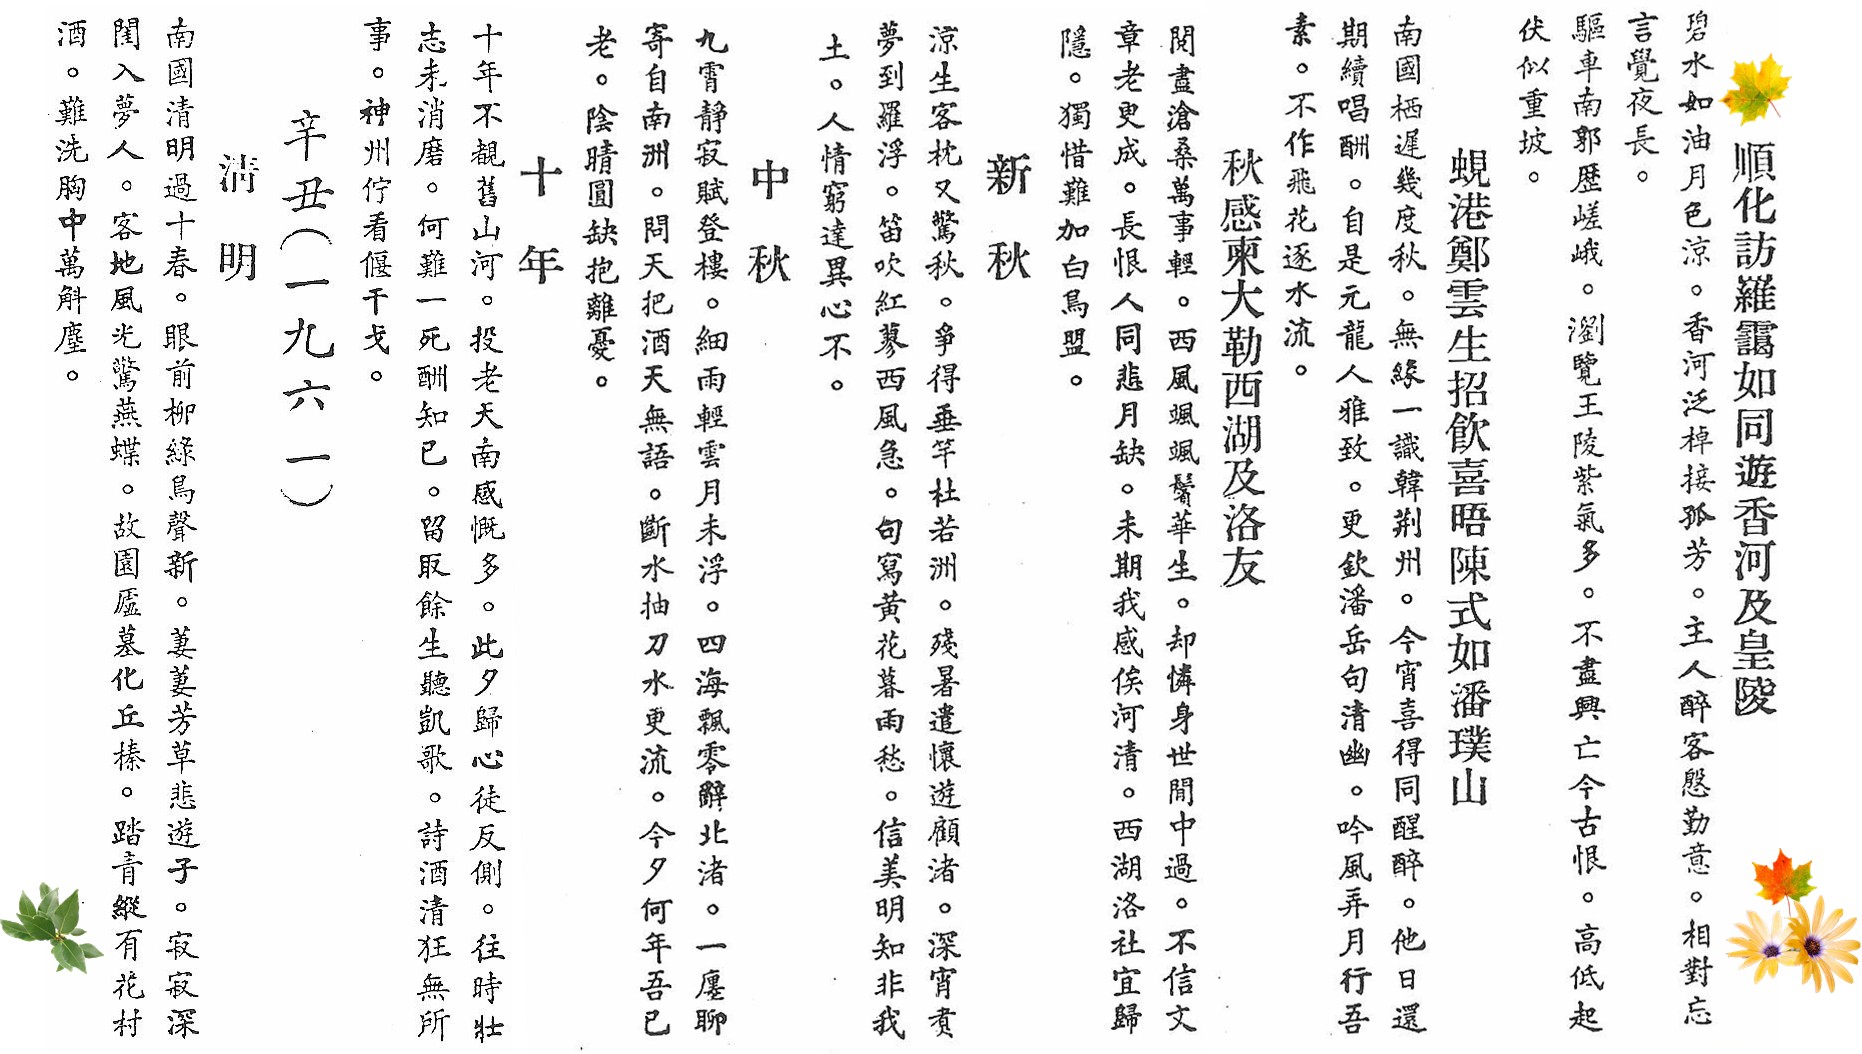 順化訪羅靄如同遊香河及皇陵
碧水如油月色涼。香河泛棹接孤芳。主人醉客慇勤意。相對忘
言覺夜長。
驅車南郭歷嵯峨。瀏覽王陵紫氣多。不盡興亡今古恨。高低起
伏似重坡。
蜆港鄭雲生招飲喜晤陳式如潘璞山
南國栖遲幾度秋。無緣一識韓荆州。今宵喜得同醒醉。他日還
期續唱酬。自是元龍人雅致。更欽潘岳句清幽。吟風弄月行吾
素。不作飛花逐水流。
秋感柬大勒西湖及洛友
閱盡滄桑萬事輕。西風颯颯鬢華生。却憐身世閒中過。不信文
章老更成。長恨人同悲月缺。未期我感俟河清。西湖洛社宜歸
隱。獨惜難加白鳥盟。
新秋
涼生客枕又驚秋。爭得垂竿杜若洲。殘暑遣懷遊顧渚。深宵賁
夢到羅浮。笛吹紅蓼西風急。句寫黃花暮雨愁。信美明知非我
土。人情窮達異心不。
中秋
九霄靜寂賦登樓。細雨輕雲月未浮。四海飄零辭北渚。一廛聊
寄自南洲。問天把酒天無語。斷水抽刀水更流。今夕何年吾已
老。陰晴圓缺抱離憂。
十年
十年不覩舊山河。投老天南感慨多。此夕歸心徒反側。往時壯
志未消磨。何難一死酬知已。留取餘生聽凱歌。詩酒清狂無所
事。神州佇看偃干戈。
辛丑(一九六一)
清明
南國清明過十春。眼前柳綠鳥聲新。萋萋芳草悲遊子。寂寂深
閨入夢人。客地風光驚燕蝶。故園廬墓化丘榛。踏青縱有花村
酒。難洗胸中萬斛塵。